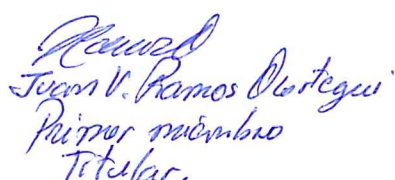 Juan V. Ramos Olortegui
Primer miembro
Titular.